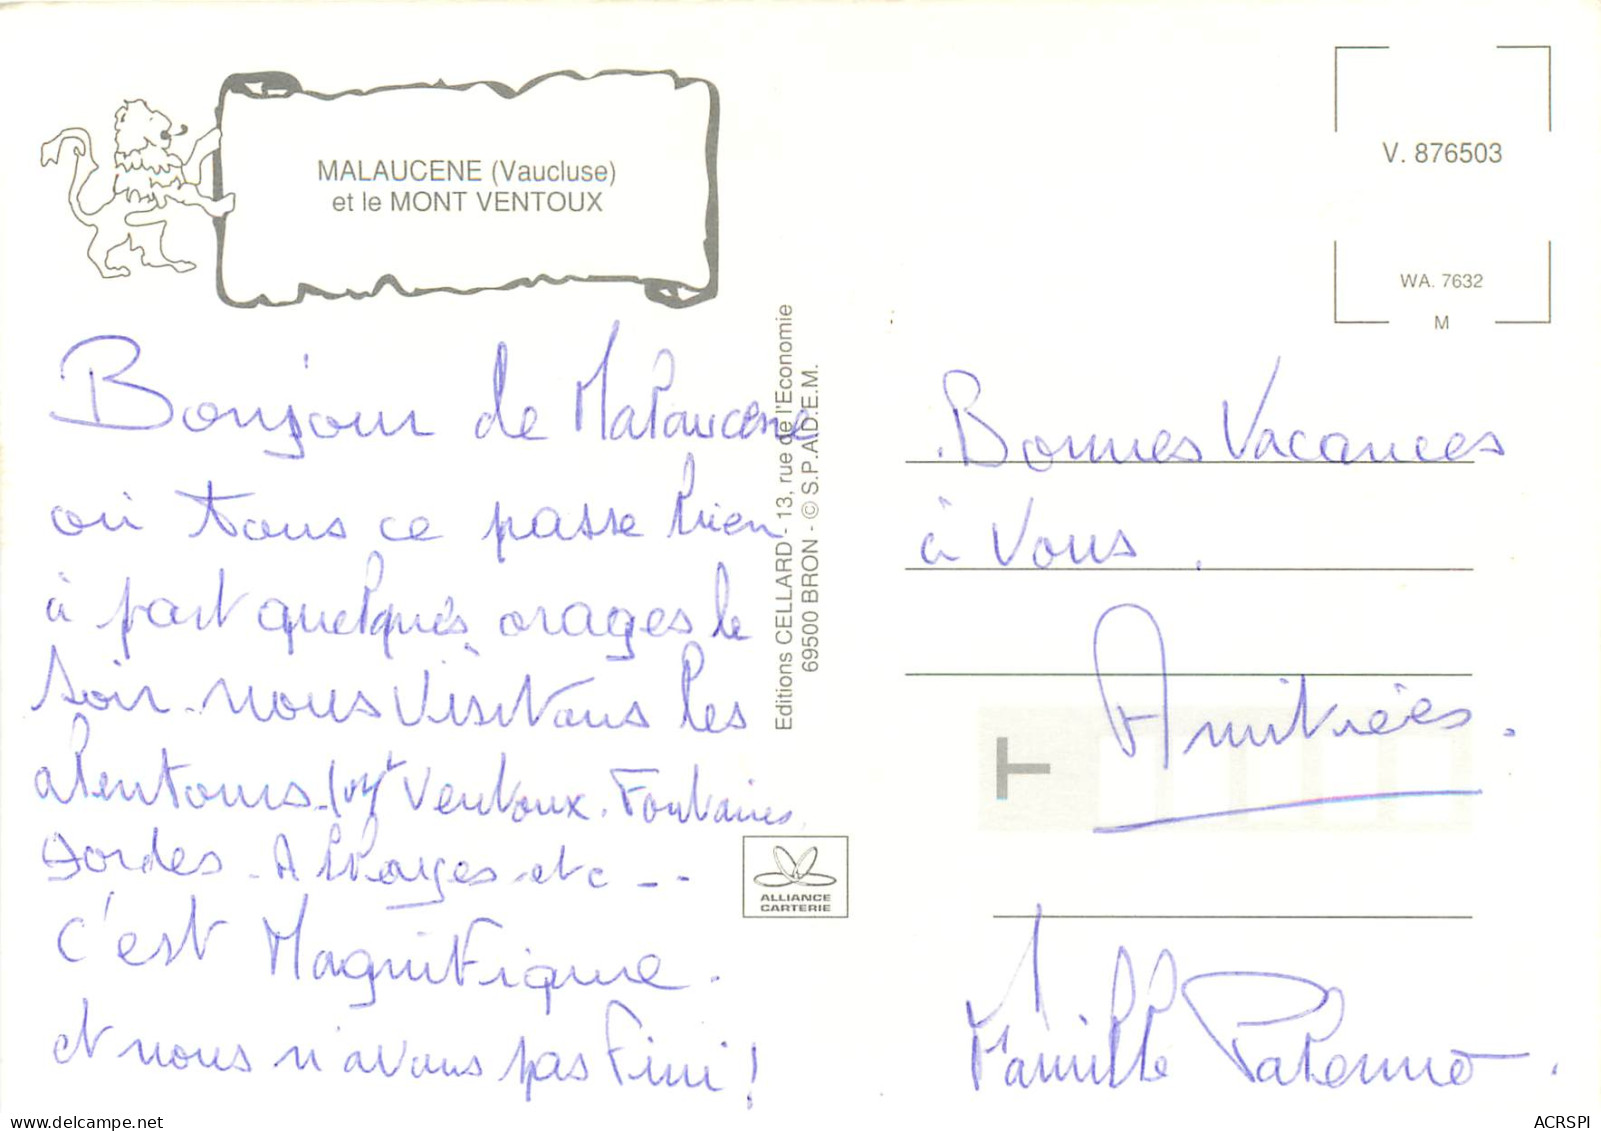 MALAUCENE (Vaucluse)
et le MONT VENTOUX
V. 876503
WA. 7632
M
Editions CELLARD - 13, rue de l'Economie
69500 BRON - © S.P.A.D.E.M.
Bonjour de Malaucène
où tous ce passe bien
à part quelques orages le
soir. nous visitons les
alentours. (Mt Ventoux. Fontaines
Gordes. etc --
c'est Magnifique.
et nous n'avons pas fini!
ALLIANCE
CARTERIE
Bonnes Vacances
à Vous.
T
Amitiées.
Famille Palermo.
ACRSPI